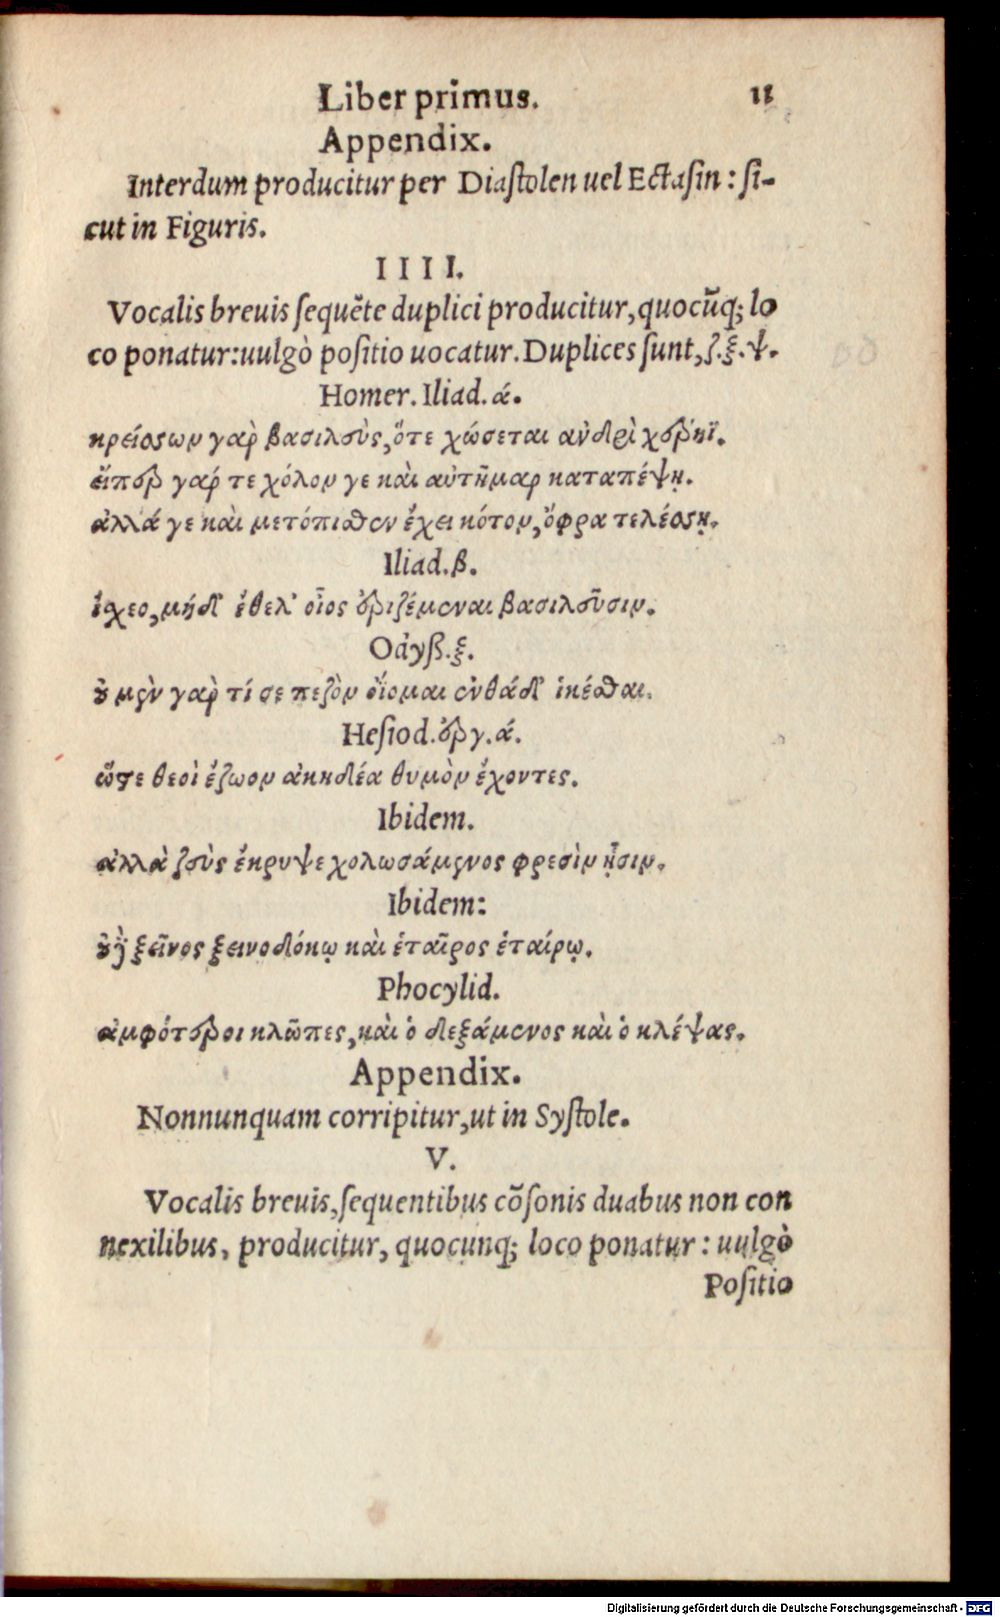 Liber primus. 11
Appendix.
Interdum producitur per Diaſtolen uel Ectaſin : ſi-
cut in Figuris.
I I I I.
Vocalis breuis ſequẽte duplici producitur, quocũq; lo
co ponatur: uulgò poſitio uocatur. Duplices ſunt, ζ. ξ. ψ.
Homer. Iliad. ά.
κρείοσων γαρ̀ βασιλεὺς, ὅτε χώσεται ανδρὶ χέρηϊ.
εἴπερ γαρ́ τε χόλον γε καὶ αὐτῆμαρ καταπέψῃ.
αλλά γε καὶ μετόπισθεν ἔχει κότον, ὄφρα τελέσσῃ.
Iliad. β.
ἴσχεο, μήδ' ἔθελ' οἶος ἐριζέμεναι βασιλεῦσιν.
Odyſſ. ξ.
οὐ μὲν γαρ̀ τί σε πεζὸν ὀΐομαι ἐνθάδ' ἱκέσθαι.
Heſiod. ἔργ. ά.
ὥστε θεοὶ ἔζωον ἀκηδέα θυμὸν ἔχοντες.
Ibidem.
αλλὰ ζεὺς ἔκρυψε χολωσάμενος φρεσὶν ᾗσιν.
Ibidem:
οὐδὲ ξεῖνος ξεινοδόκῳ καὶ ἑταῖρος ἑταίρῳ.
Phocylid.
αμφότεροι κλῶπες, καὶ ὁ δεξάμενος καὶ ὁ κλέψας.
Appendix.
Nonnunquam corripitur, ut in Syſtole.
V.
Vocalis breuis, ſequentibus cõſonis duabus non con
nexilibus, producitur, quocunq; loco ponatur : uulgò
Poſitio
Digitalisierung gefördert durch die Deutsche Forschungsgemeinschaft - DFG